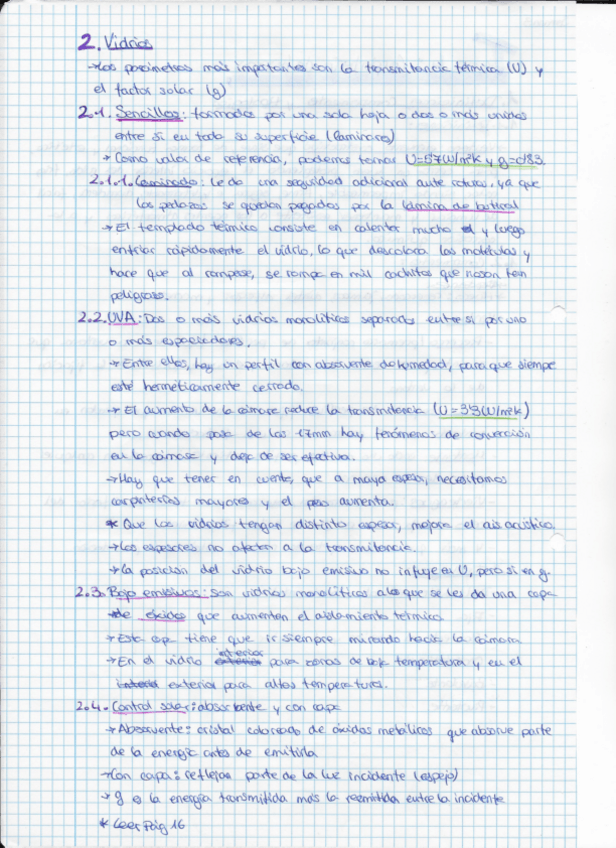 2. Vidrios
→Los parámetros más importantes son la transmitancia térmica (U) y
el factor solar (g)
2.1. Sencillos: formados por una sola hoja o dos o más unidas
entre si en toda su superficie (laminars)
→ Como valor de referencia, podemos tomar U=5'7W/m²K y g=0'83.
2.1.1. Laminado: le da una seguridad adicional ante roturas, ya que
los pedazos se quedan pegados por la lámina de butiral
→ El templado térmico consiste en calentar mucho y luego
enfriar rápidamente el vidrio, lo que descoloca las moléculas y
hace que al romperse, se rompa en mil cachitos que no son tan
peligrosos.
2.2. UVA: Dos o más vidrios monolíticos separados entre sí por uno
o más espaciadores.
→ Entre ellos, hay un perfil con absorvente de humedad, para que siempre
esté herméticamente cerrado.
→ El aumento de la cámara reduce la transmitancia (U=3'3W/m²K)
pero cuando pasa de los 17mm hay fenómenos de convección
en la cámara y deja de ser efectiva.
→Hay que tener en cuenta, que a mayor espesor, necesitamos
carpinterías mayores y el peso aumenta.
* Que los vidrios tengan distinto espesor, mejora el ais acústico.
→Los espesores no afectan a la transmitancia.
→La posición del vidrio bajo emisivo no influye en U, pero si en g.
2.3. Bajo emisivos: son vidrios monolíticos a los que se les da una capa
de óxidos que aumentan el aislamiento térmico
→ Esta capa tiene que ir siempre mirando hacia la cámara
→En el vidrio interior para zonas de baja temperatura y en el
exterior para altas temperaturas.
2.4. Control solar: absorbente y con capa
→ Absorvente: cristal coloreado de óxidos metálicos que absorve parte
de la energía antes de emitirla
→Con capa: reflejan parte de la luz incidente (espejo)
→ g es la energía transmitida más la reemitida entre la incidente
* Leer Pág 16